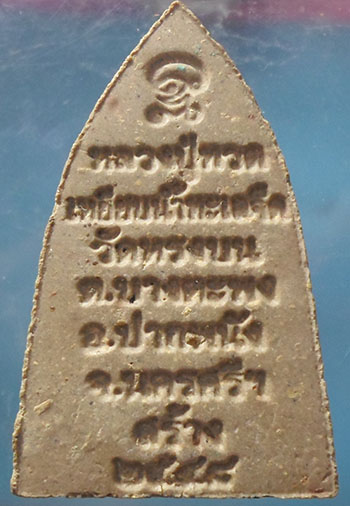 หลวงปู่ทวด
เหยียบน้ำทะเลจืด
วัดทรงบน
ต.บางตะพง
อ.ปากพนัง
จ.นครศรีฯ
สร้าง
๒๕๔๙